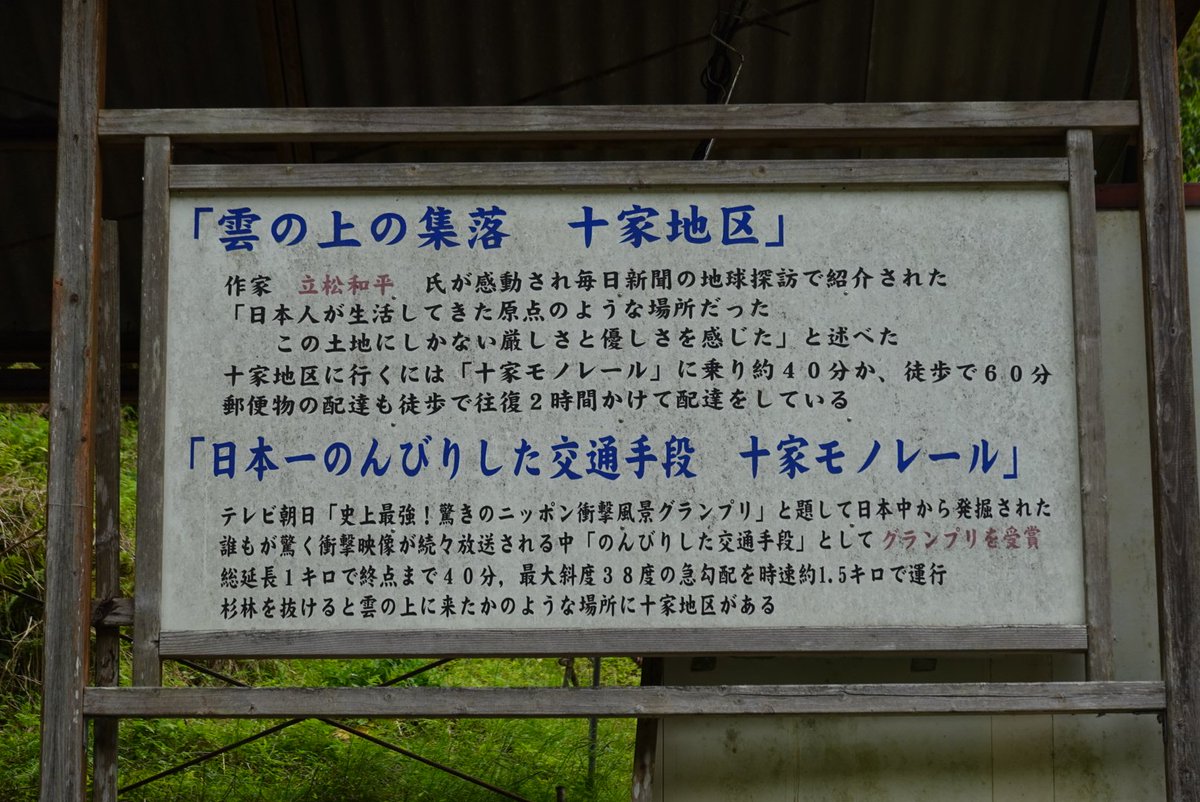 「雲の上の集落　十家地区」
作家　立松和平　氏が感動され毎日新聞の地球探訪で紹介された
「日本人が生活してきた原点のような場所だった
この土地にしかない厳しさと優しさを感じた」と述べた
十家地区に行くには「十家モノレール」に乗り約４０分か、徒歩で６０分
郵便物の配達も徒歩で往復２時間かけて配達をしている
「日本一のんびりした交通手段　十家モノレール」
テレビ朝日「史上最強！驚きのニッポン衝撃風景グランプリ」と題して日本中から発掘された
誰もが驚く衝撃映像が続々放送される中「のんびりした交通手段」としてグランプリを受賞
総延長１キロで終点まで４０分，最大斜度３８度の急勾配を時速約1.5キロで運行
杉林を抜けると雲の上に来たかのような場所に十家地区がある